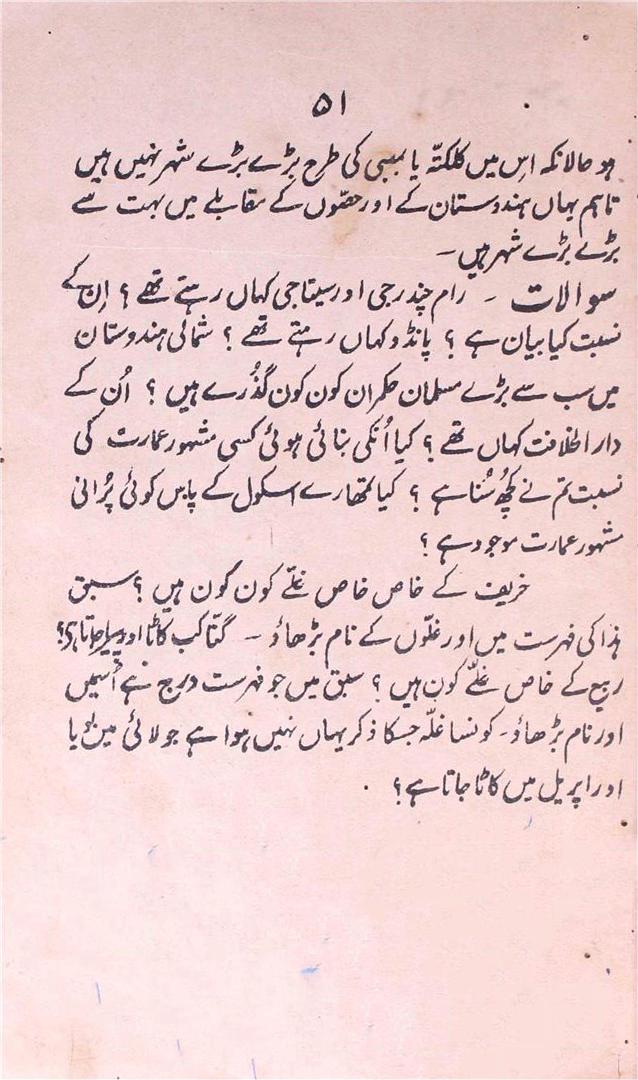 ۵۱
ہو حالانکہ اِس میں کلکتہّ یا بمبئی کی طرح بڑے بڑے شہر نہیں ہیں
تاہم یہاں ہندوستان کے اور حصّوں کے مقابلے میں بہت سے
بڑے بڑے شہر ہیں۔
سوالات ۔ رام چندر جی اور سیتا جی کہاں رہتے تھے ؟ اِن کے
نسبت کیا بیان ہے ؟ پانڈو کہاں رہتے تھے ؟ شمالی ہندوستان
میں سب سے بڑے مسلمان حکمران کون کون گذُرے ہیں ؟ اُن کے
دار الخلافت کہاں تھے ؟ کیا اُنکی بنائی ہوئی کسی مشہور عمارت کی
نسبت تم نے کچھ سُنا ہے ؟ کیا تمھارے اسکول کے پاس کوئی پُرانی
مشہور عمارت موجود ہے ؟
خریف کے خاص خاص غلّے کون کون ہیں ؟ سبق
ہذا کی فہرست میں اور غلّوں کے نام بڑھاؤ ۔ گنّا کب کاٹا اور پیلا جاتا ہی؟
ربیع کے خاص غلّے کون ہیں ؟ سبق میں جو فہرست درج ہے اُسمیں
اور نام بڑھاؤ۔ کونسا غلّہ جسکا ذکر یہاں نہیں ہوا ہے جولائی میں بویا
اور اپریل میں کاٹا جاتا ہے ؟